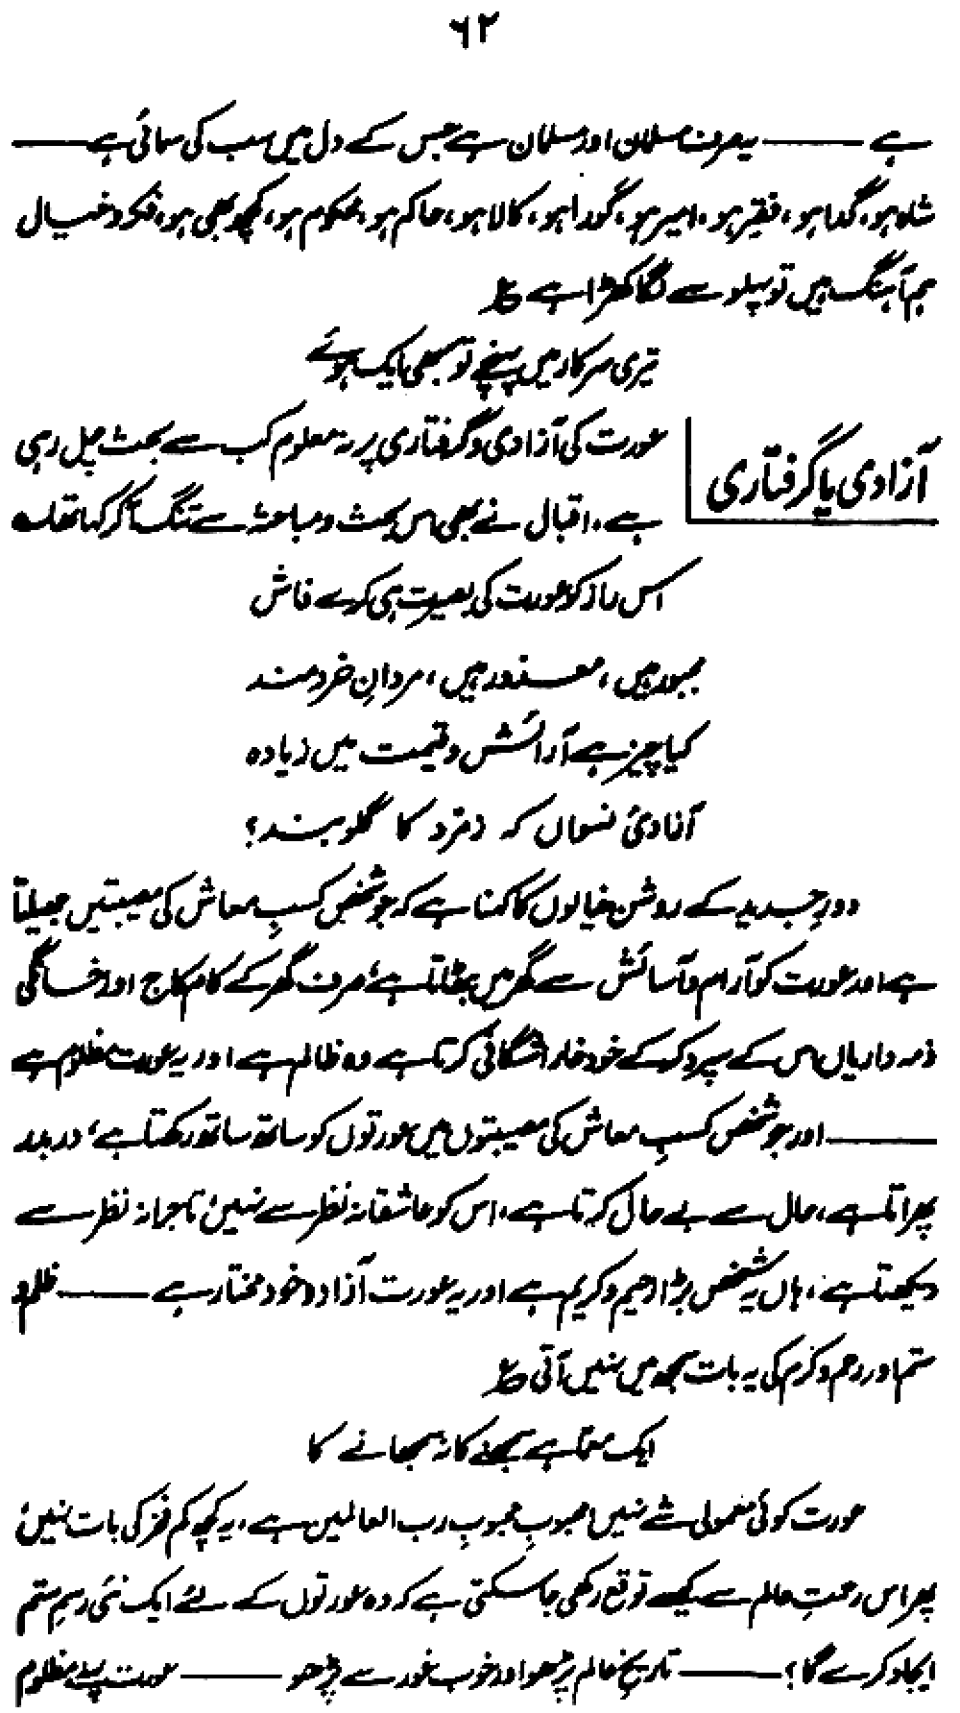 ۶۲
ہے ——— یہ صرف مسلمان اور مسلمان ہے جس کے دل میں سب کی سمائی ہے ———
شاہ ہو، گدا ہو، فقیر ہو، امیر ہو، گورا ہو، کالا ہو، حاکم ہو، محکوم ہو، کچھ بھی ہو، فکر و خیال
ہم آہنگ ہیں تو پہلو سے لگا کھڑا ہے ؏
تیری سرکار میں پہنچے تو سبھی ایک ہوئے
آزادی یا گرفتاری
عورت کی آزادی و گرفتاری پر نہ معلوم کب سے بحث چل رہی
ہے، اقبال نے بھی اس بحث و مباحثہ سے تنگ آکر کہا تھا ؎
اس راز کو عورت کی بصیرت ہی کرے فاش
مجبور ہیں، معذور ہیں، مردانِ خرد مند
کیا چیز ہے آرائش و قیمت میں زیادہ
آزادیٔ نسواں کہ زمرّد کا گلوبند؟
دورِ جدید کے روشن خیالوں کا کہنا ہے کہ جو شخص کسبِ معاش کی مصیبتیں جھیلتا
ہے اور عورت کو آرام و آسائش سے گھر میں بٹھاتا ہے، صرف گھر کے کام کاج اور خانگی
ذمہ داریاں اس کے سپرد کر کے خود خار اشگافی کرتا ہے وہ ظالم ہے اور یہ عورت مظلوم ہے
——— اور جو شخص کسبِ معاش کی مصیبتوں میں عورتوں کو ساتھ ساتھ رکھتا ہے، در بدر
پھراتا ہے، حال سے بے حال کرتا ہے، اس کو عاشقانہ نظر سے نہیں، تاجرانہ نظر سے
دیکھتا ہے، ہاں یہ شخص بڑا رحیم و کریم ہے اور یہ عورت آزاد و خود مختار ہے ——— ظلم و
ستم اور رحم و کرم کی یہ بات سمجھ میں نہیں آتی ؏
ایک معمّا ہے سمجھنے کا نہ سمجھانے کا
عورت کوئی معمولی شے نہیں محبوبِ محبوبِ رب العالمین ہے، یہ کچھ کم فخر کی بات نہیں،
پھر اس رحمتِ عالم سے کیسے توقع رکھی جا سکتی ہے کہ وہ عورتوں کے لئے ایک نئی رسمِ ستم
ایجاد کرے گا؟ ——— تاریخِ عالم پڑھو اور خوب غور سے پڑھو ——— عورت پہلے مظلوم